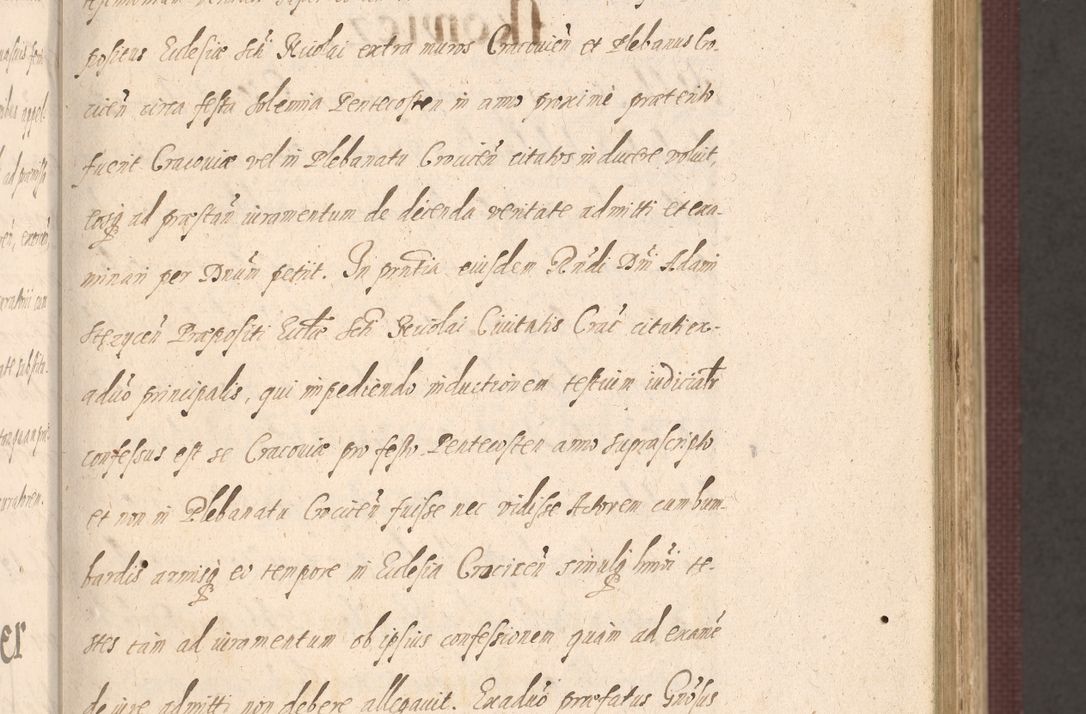 positus Ecclesiæ Sti Nicolai extra muros Cracovieñ et Plebanus Cro-
cieñ circa festa solemnia Pentecosten in anno proximè præterito
fuerit Cracoviæ vel in Plebanatu Crocieñ citatos inducere voluit,
eosq ad præstañ iuramentum de dicenda veritate admitti et exa-
minari per Dnum petiit. In prntia eiusdem Rndi Dni Adami
Præpositi Eccliæ Sti Nicolai Civitatis Crac citati ex-
aduo principalis, qui impediendo inductionem testium iudicialr
confessus est se Cracoviæ pro festo Pentecosten anno suprascripto
et non in Plebanatu Crocieñ fuisse nec vidisse Actorem cum bum-
bardis armisq eo tempore in Ecclesia Crocieñ simulq hmoi te-
stes tàm ad iuramentum ob ipsius confessionem quàm ad exame
de iure admitti non debere allegavit. Exaduo præfatus Gnosus